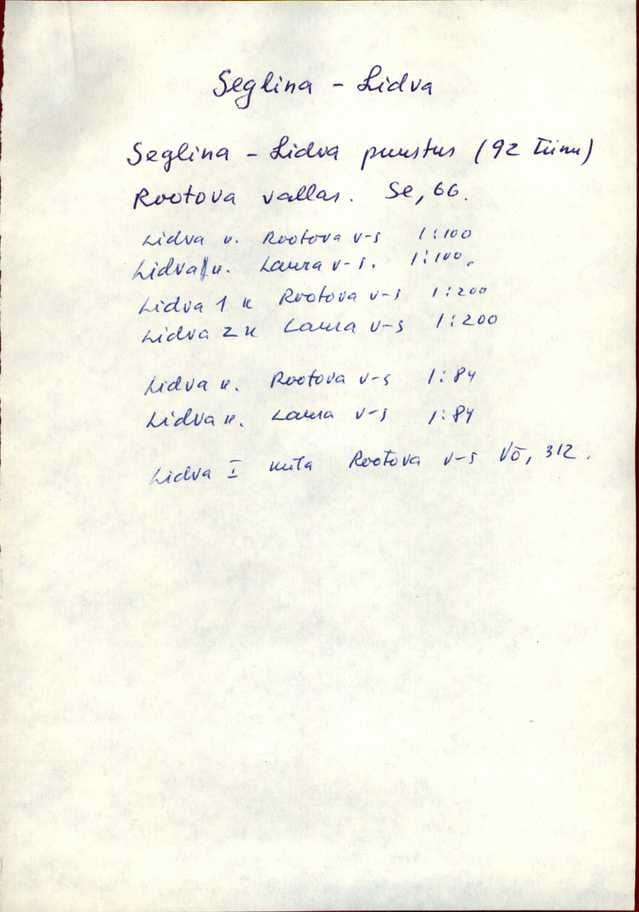 Seglina - Lidva
Seglina - Lidva puustus (92 tiinu)
Rootova vallas. Se, 66.
Lidva k. Rootova v-s 1:100
Lidva k. Laura v-s. 1:100.
Lidva 1 k Rootova v-s 1:200
Lidva 2 k Laura v-s 1:200
Lidva k. Rootova v-s 1:84
Lidva k. Laura v-s 1:84
Lidva I Rootova v-s Võ, 312.